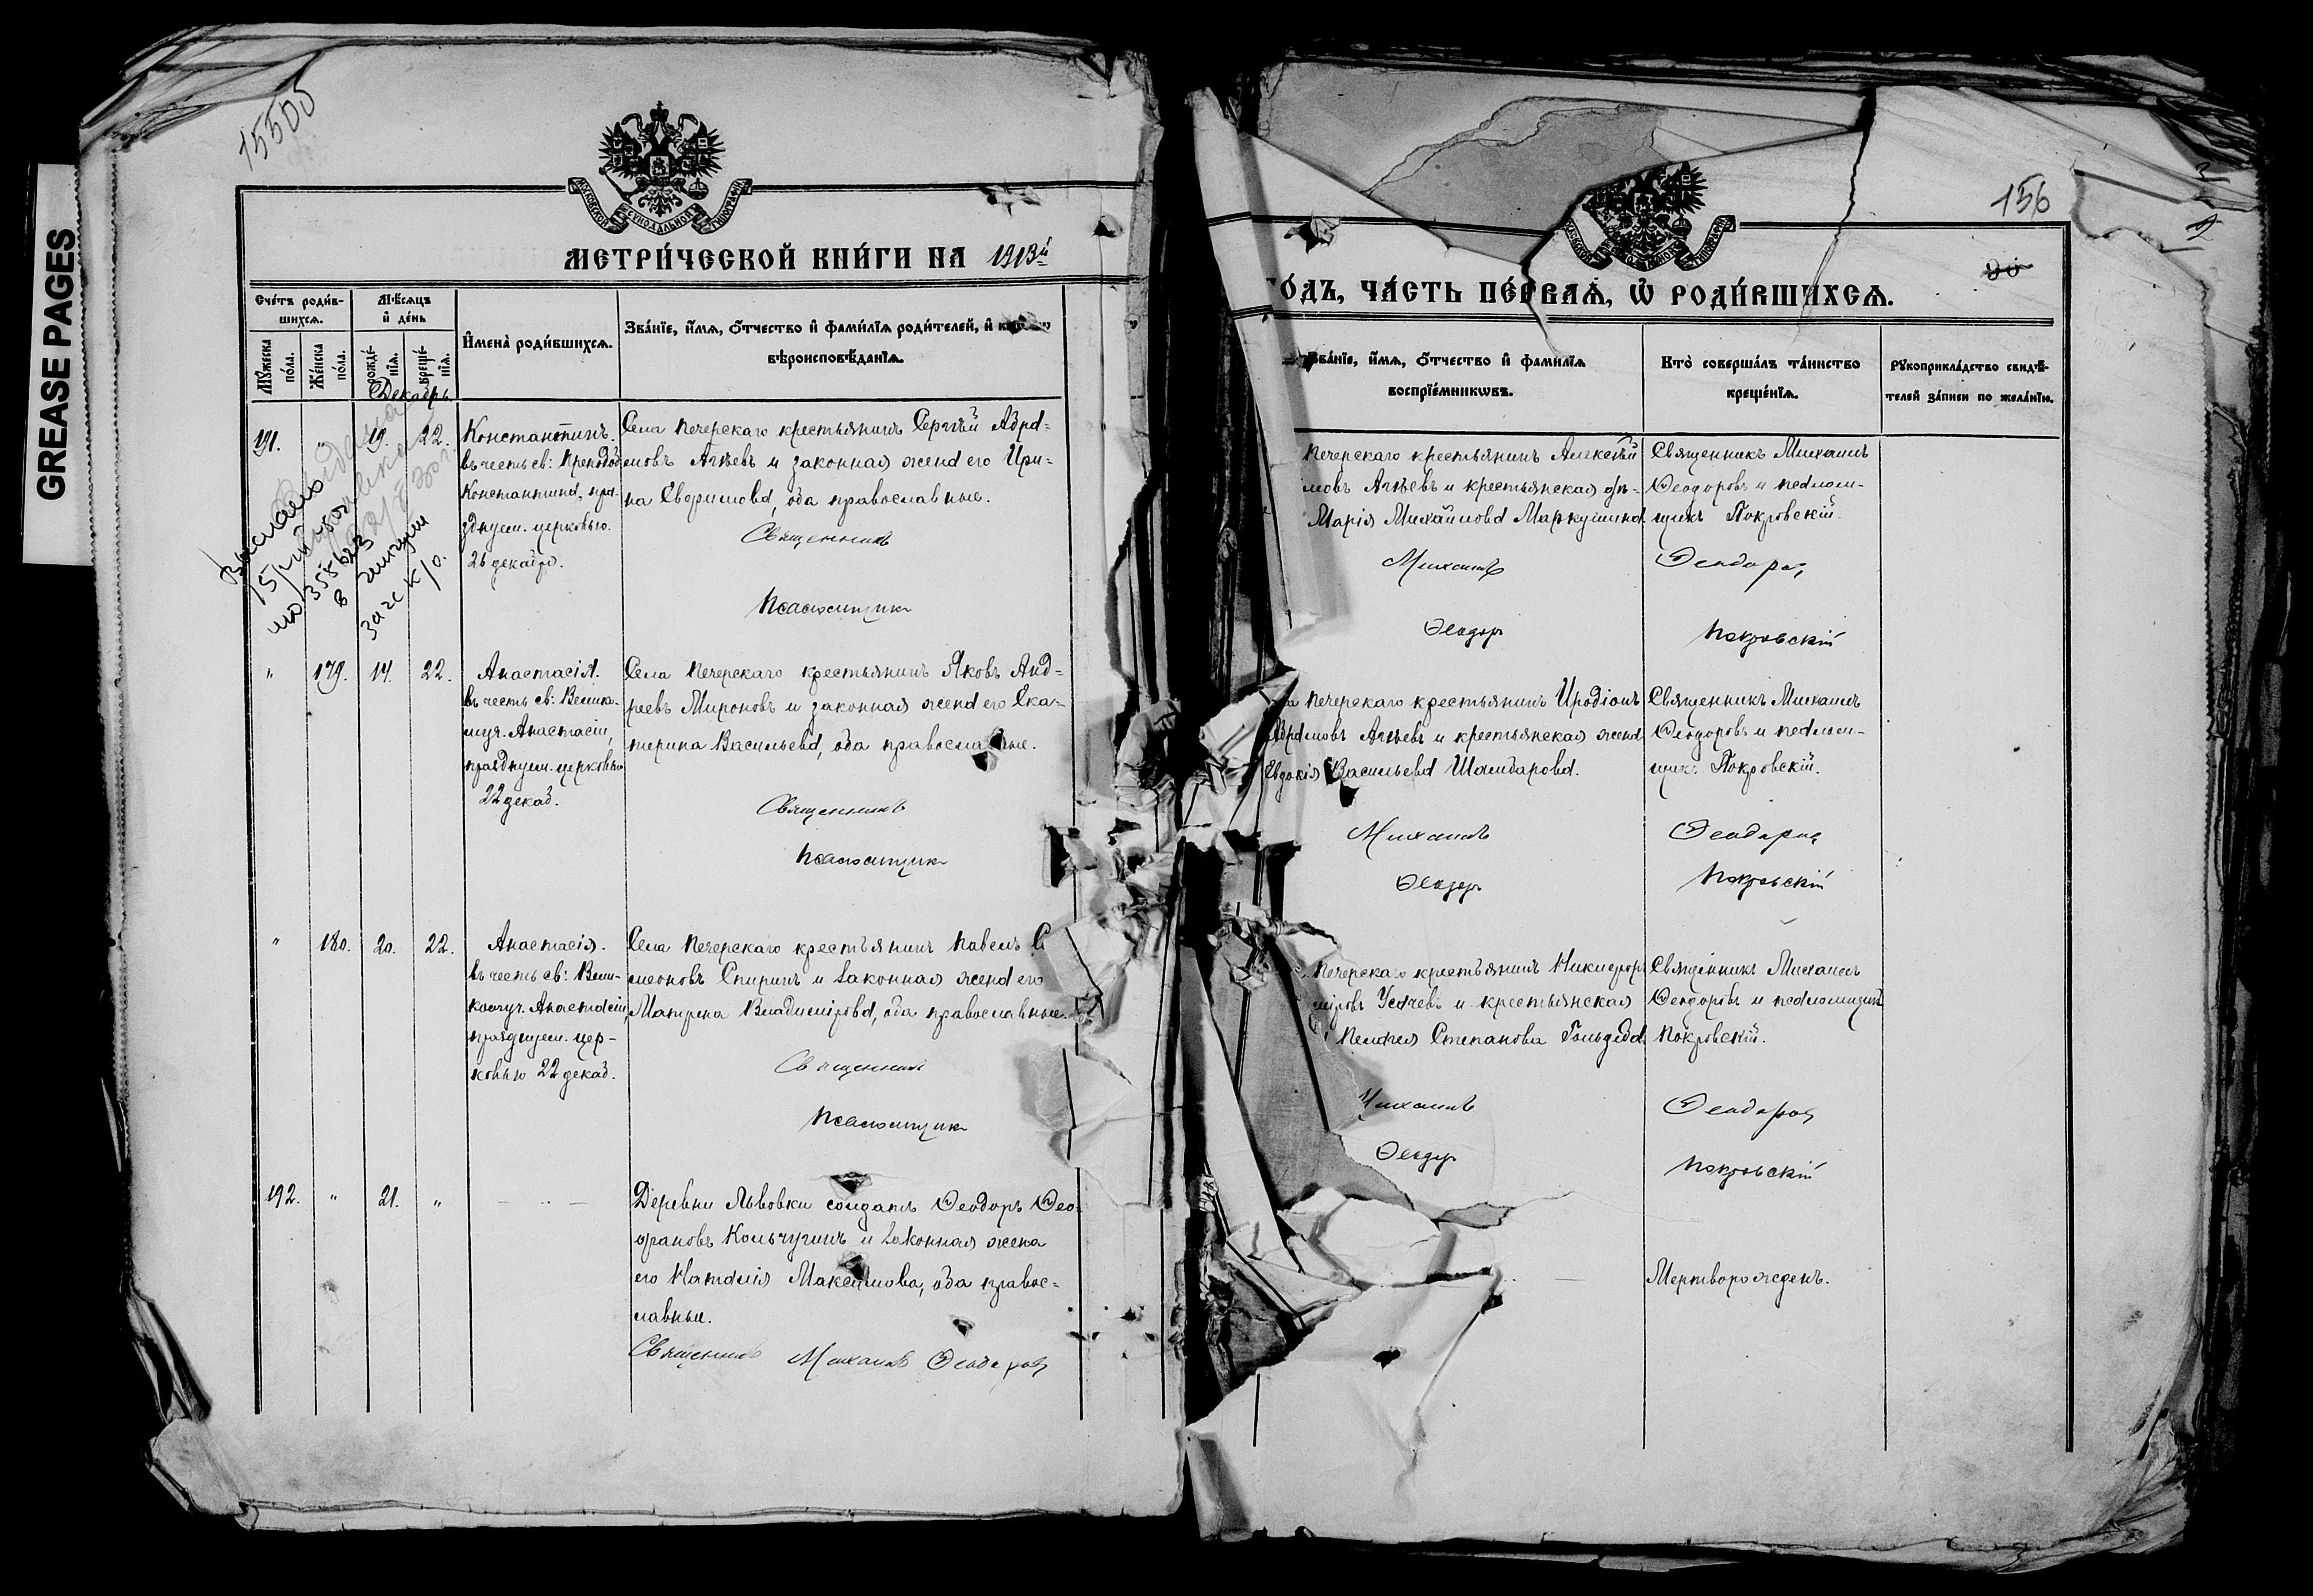 15505
GREASE PAGES
МОСКОВСКОЙ СѴНОДАЛЬНОЙ ТИПОГРАФІИ
МЕТРИ́ЧЕСКОЙ КНИ́ГИ НА 1913й
Сче́тъ роди́в-
шихсѧ.
Мѣ́сѧцъ
и҆ де́нь
Мꙋ́жеска
по́ла.
Же́нска
по́ла.
рожде́-
нїѧ.
креще́-
нїѧ.
И҆мена̀ роди́вшихсѧ.
Зва́нїе, и҆́мѧ, ѻ҆́тчество и҆ фами́лїѧ роди́телей, и҆
вѣроисповѣ́данїѧ.
Декабрь
191. " 19. 22.
Константинъ.
въ честь св: Преподоб
Константина, праз-
днуем. церковью.
26 декабр.
Села Печерскаго крестьянинъ Сергѣй Абра-
мовъ Агѣевъ и законная жена его Ири-
на Евфимова, оба православные.
Священникъ
Псаломщикъ
за
" 179. 14. 22.
Анастасія.
въ честь св: Велико-
муч. Анастасіи,
празднуем. церковью
22 декаб.
Села Печерскаго крестьянинъ Яковъ Анд-
реевъ Мироновъ и законная жена его Ека-
терина Васильева, оба православные.
Священникъ
Псаломщикъ
" 180. 20. 22.
Анастасія.
въ честь св: Вели-
комуч. Анастасіи,
празднуем. цер-
ковью 22 декаб.
Села Печерскаго крестьянинъ Павелъ С
меоновъ Спиринъ и законная жена его
Матрена Владимірова, оба православные.
Священникъ
Псаломщикъ
192. " 21. "
Деревни Львовки солдатъ Ѳеодоръ Ѳео-
фановъ Кольчугинъ и законная жена
его Наталія Максимова, оба правос-
лавные.
Священникъ Михаилъ Ѳеодоровъ
156
90
ГО́ДЪ, ЧА́СТЬ ПЕ́РВАѦ, Ѡ҆ РОДИ́ВШИХСѦ.
Зва́нїе, и҆́мѧ, ѻ҆́тчество и҆ фами́лїѧ
воспрїе́мникѡвъ.
Кто̀ соверша́лъ та́инство
креще́нїѧ.
Рꙋкоприкла́дство свидѣ́-
телей за́писи по жела́нїю.
Печерскаго крестьянинъ Алексѣй
мовъ Агѣевъ и крестьянская дѣ-
Марія Михайлова Маркушина
Священникъ Михаилъ
Ѳеодоровъ и псалом-
щикъ Покровскій.
Михаилъ Ѳеодоровъ
Ѳеодоръ Покровскій
Печерскаго крестьянинъ Иродіонъ
Абрамовъ Агѣевъ и крестьянская жена
Евдокія Васильева Шамбарова.
Священникъ Михаилъ
Ѳеодоровъ и псалом-
щик. Покровскій.
Михаилъ Ѳеодоровъ
Ѳеодоръ Покровскій
Печерскаго крестьянинъ Никифоръ
міровъ Усачевъ и крестьянская
Пелагея Степанова
Священникъ Михаилъ
Ѳеодоровъ и псаломщикъ
Покровскій.
Михаилъ Ѳеодоровъ
Ѳеодоръ Покровскій
Мертворожденъ.